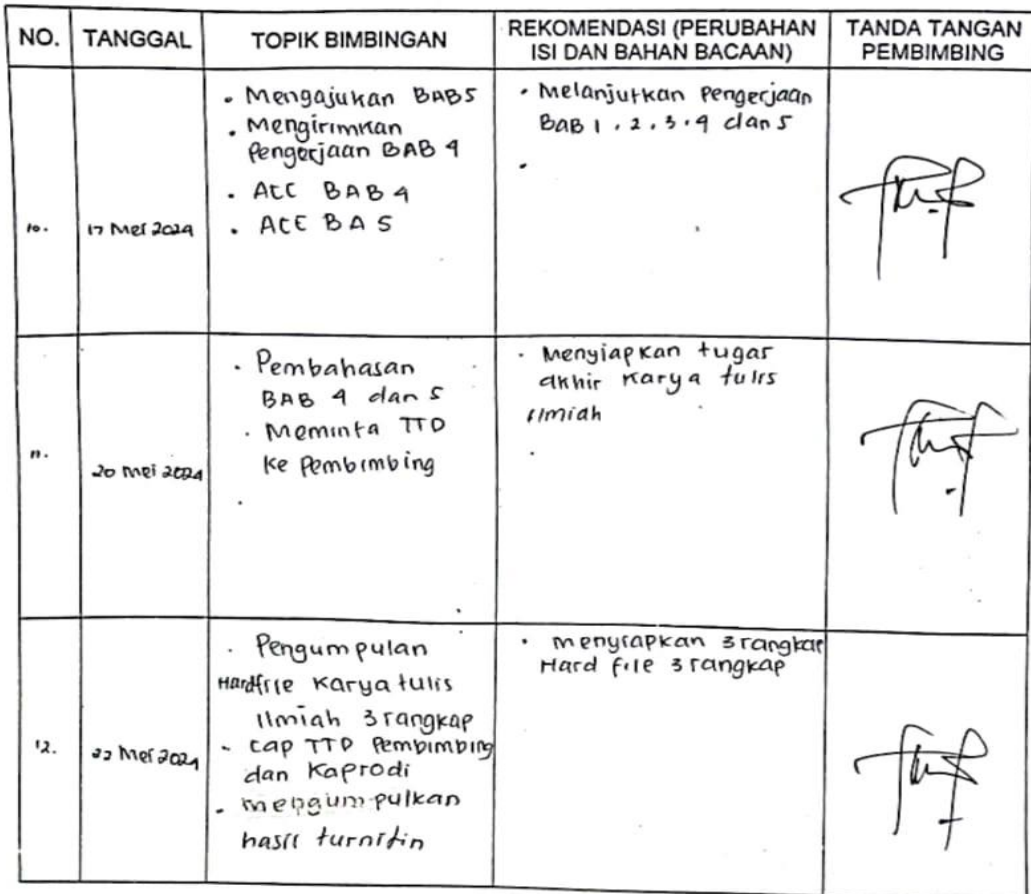 NO.
TANGGAL
TOPIK BIMBINGAN
REKOMENDASI (PERUBAHAN
ISI DAN BAHAN BACAAN)
TANDA TANGAN
PEMBIMBING
10.
17 Mei 2024
• Mengajukan BAB5
• Mengirimkan
Pengerjaan BAB 4
• ACC BAB 4
• ACC BA 5
• Melanjutkan Pengerjaan
BAB 1, 2, 3, 4 dan 5
•
11.
20 Mei 2024
• Pembahasan
BAB 4 dan 5
• Meminta TTD
ke Pembimbing
•
• Menyiapkan tugas
akhir Karya tulis
ilmiah
•
12.
22 Mei 2024
• Pengumpulan
Hardfile Karya tulis
ilmiah 3 rangkap
- Cap TTD Pembimbing
dan Kaprodi
• mengumpulkan
hasil turnitin
• menyiapkan 3 rangkap
Hard file 3 rangkap